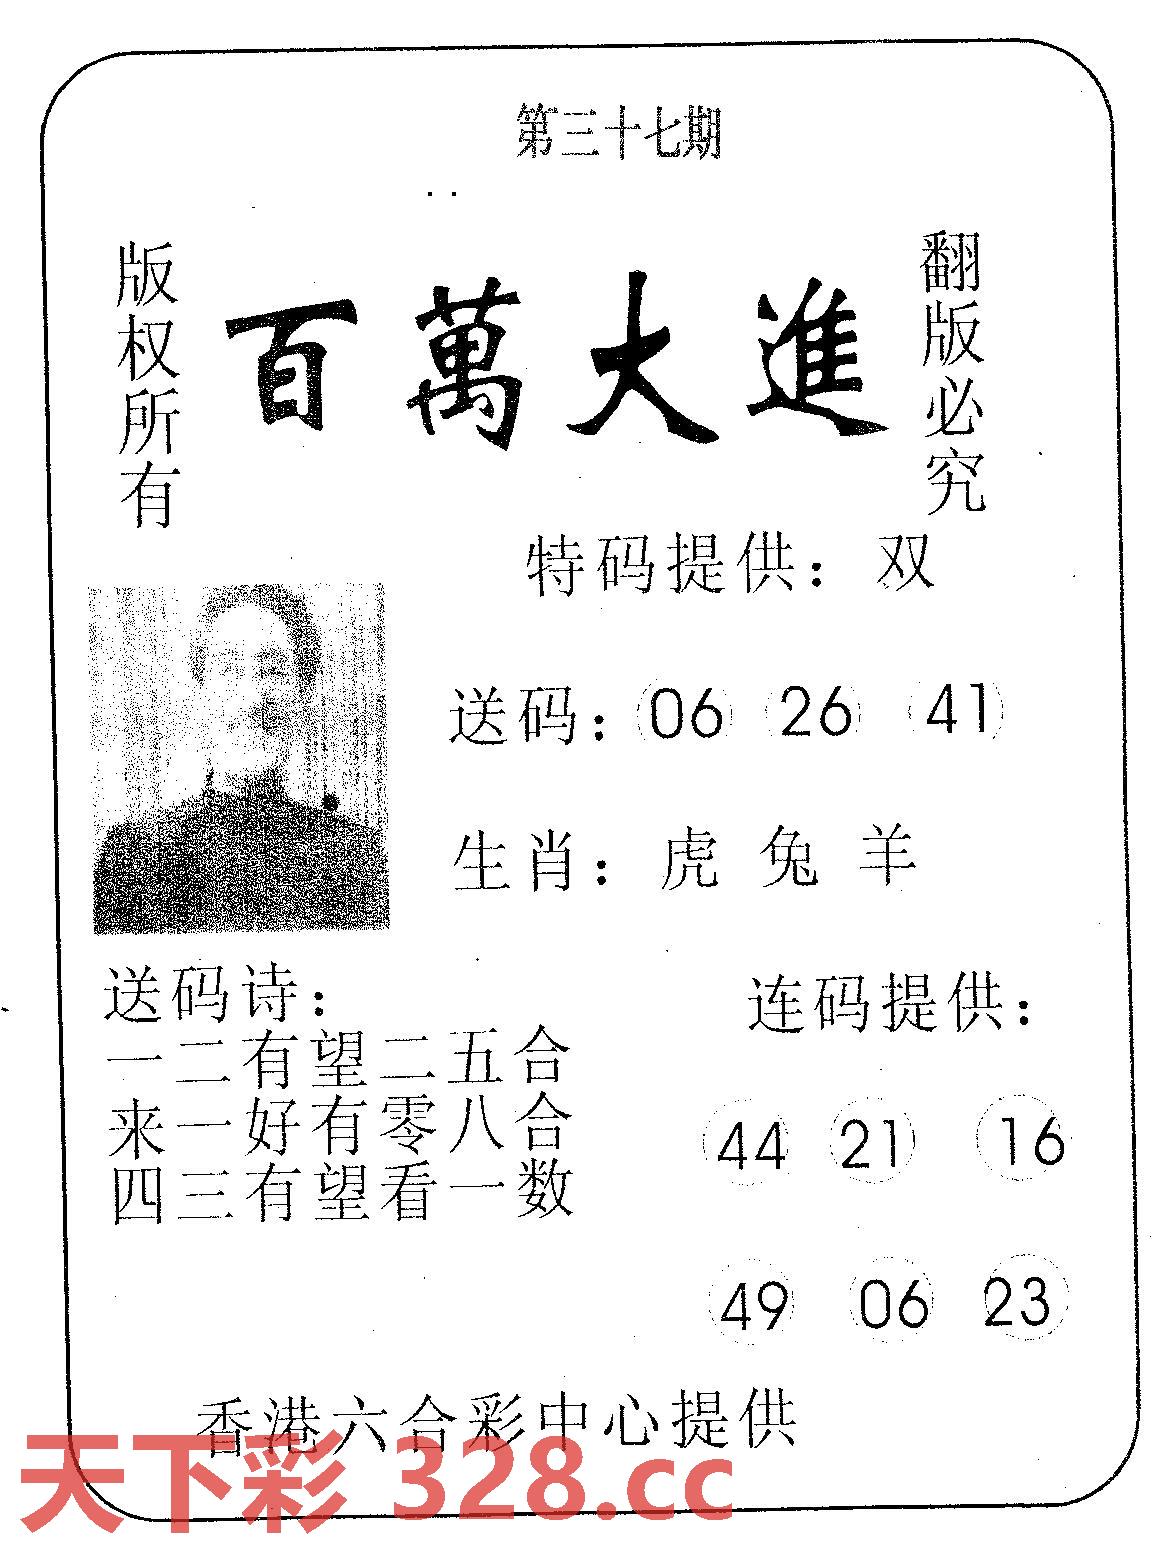 第三十七期
版权所有
百萬大進
翻版必究
特码提供：双
送码：06 26 41
生肖：虎 兔 羊
送码诗：
一二有望二五合
来一好有零八合
四三有望看一数
连码提供：
44 21 16
49 06 23
香港六合彩中心提供
天下彩 328.cc